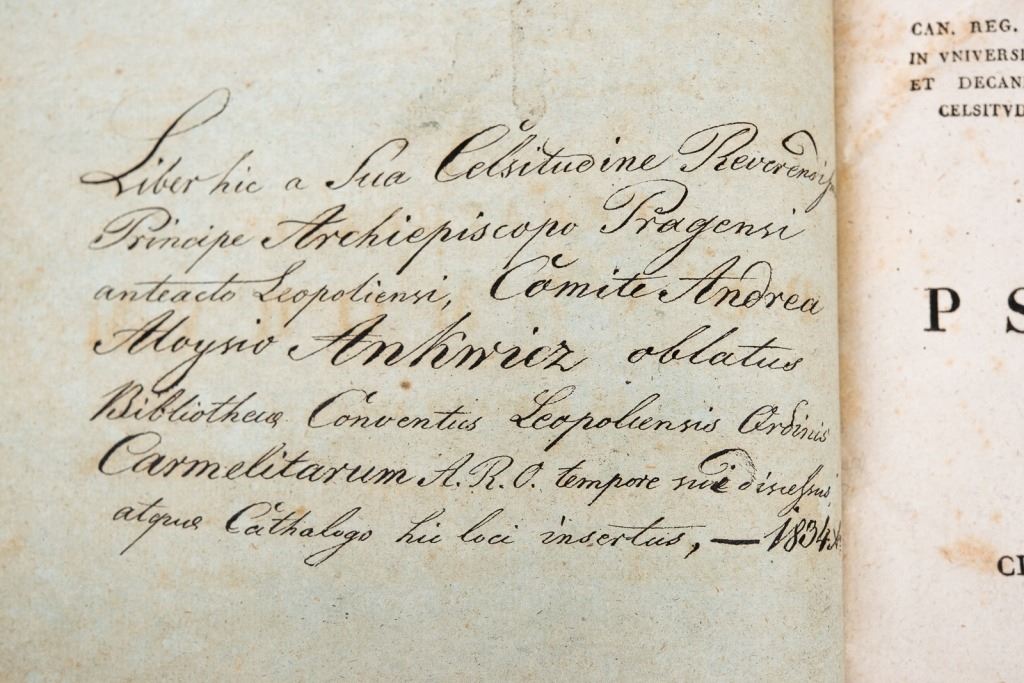 Liber hic a Sua Celsitudine
Principe Archiepiscopo Pragensi
anteacto Leopoliensi, Comite Andrea
Aloysio Ankwicz oblatus
Bibliothecæ Conventus Leopoliensis Ordinis
Carmelitarum A. R. O. tempore sui discessus,
atque Cathalogo hic loci insertus, — 1834
CAN. REG.
IN VNIVERSI
ET DECAN
CELSITVD
P S
CI